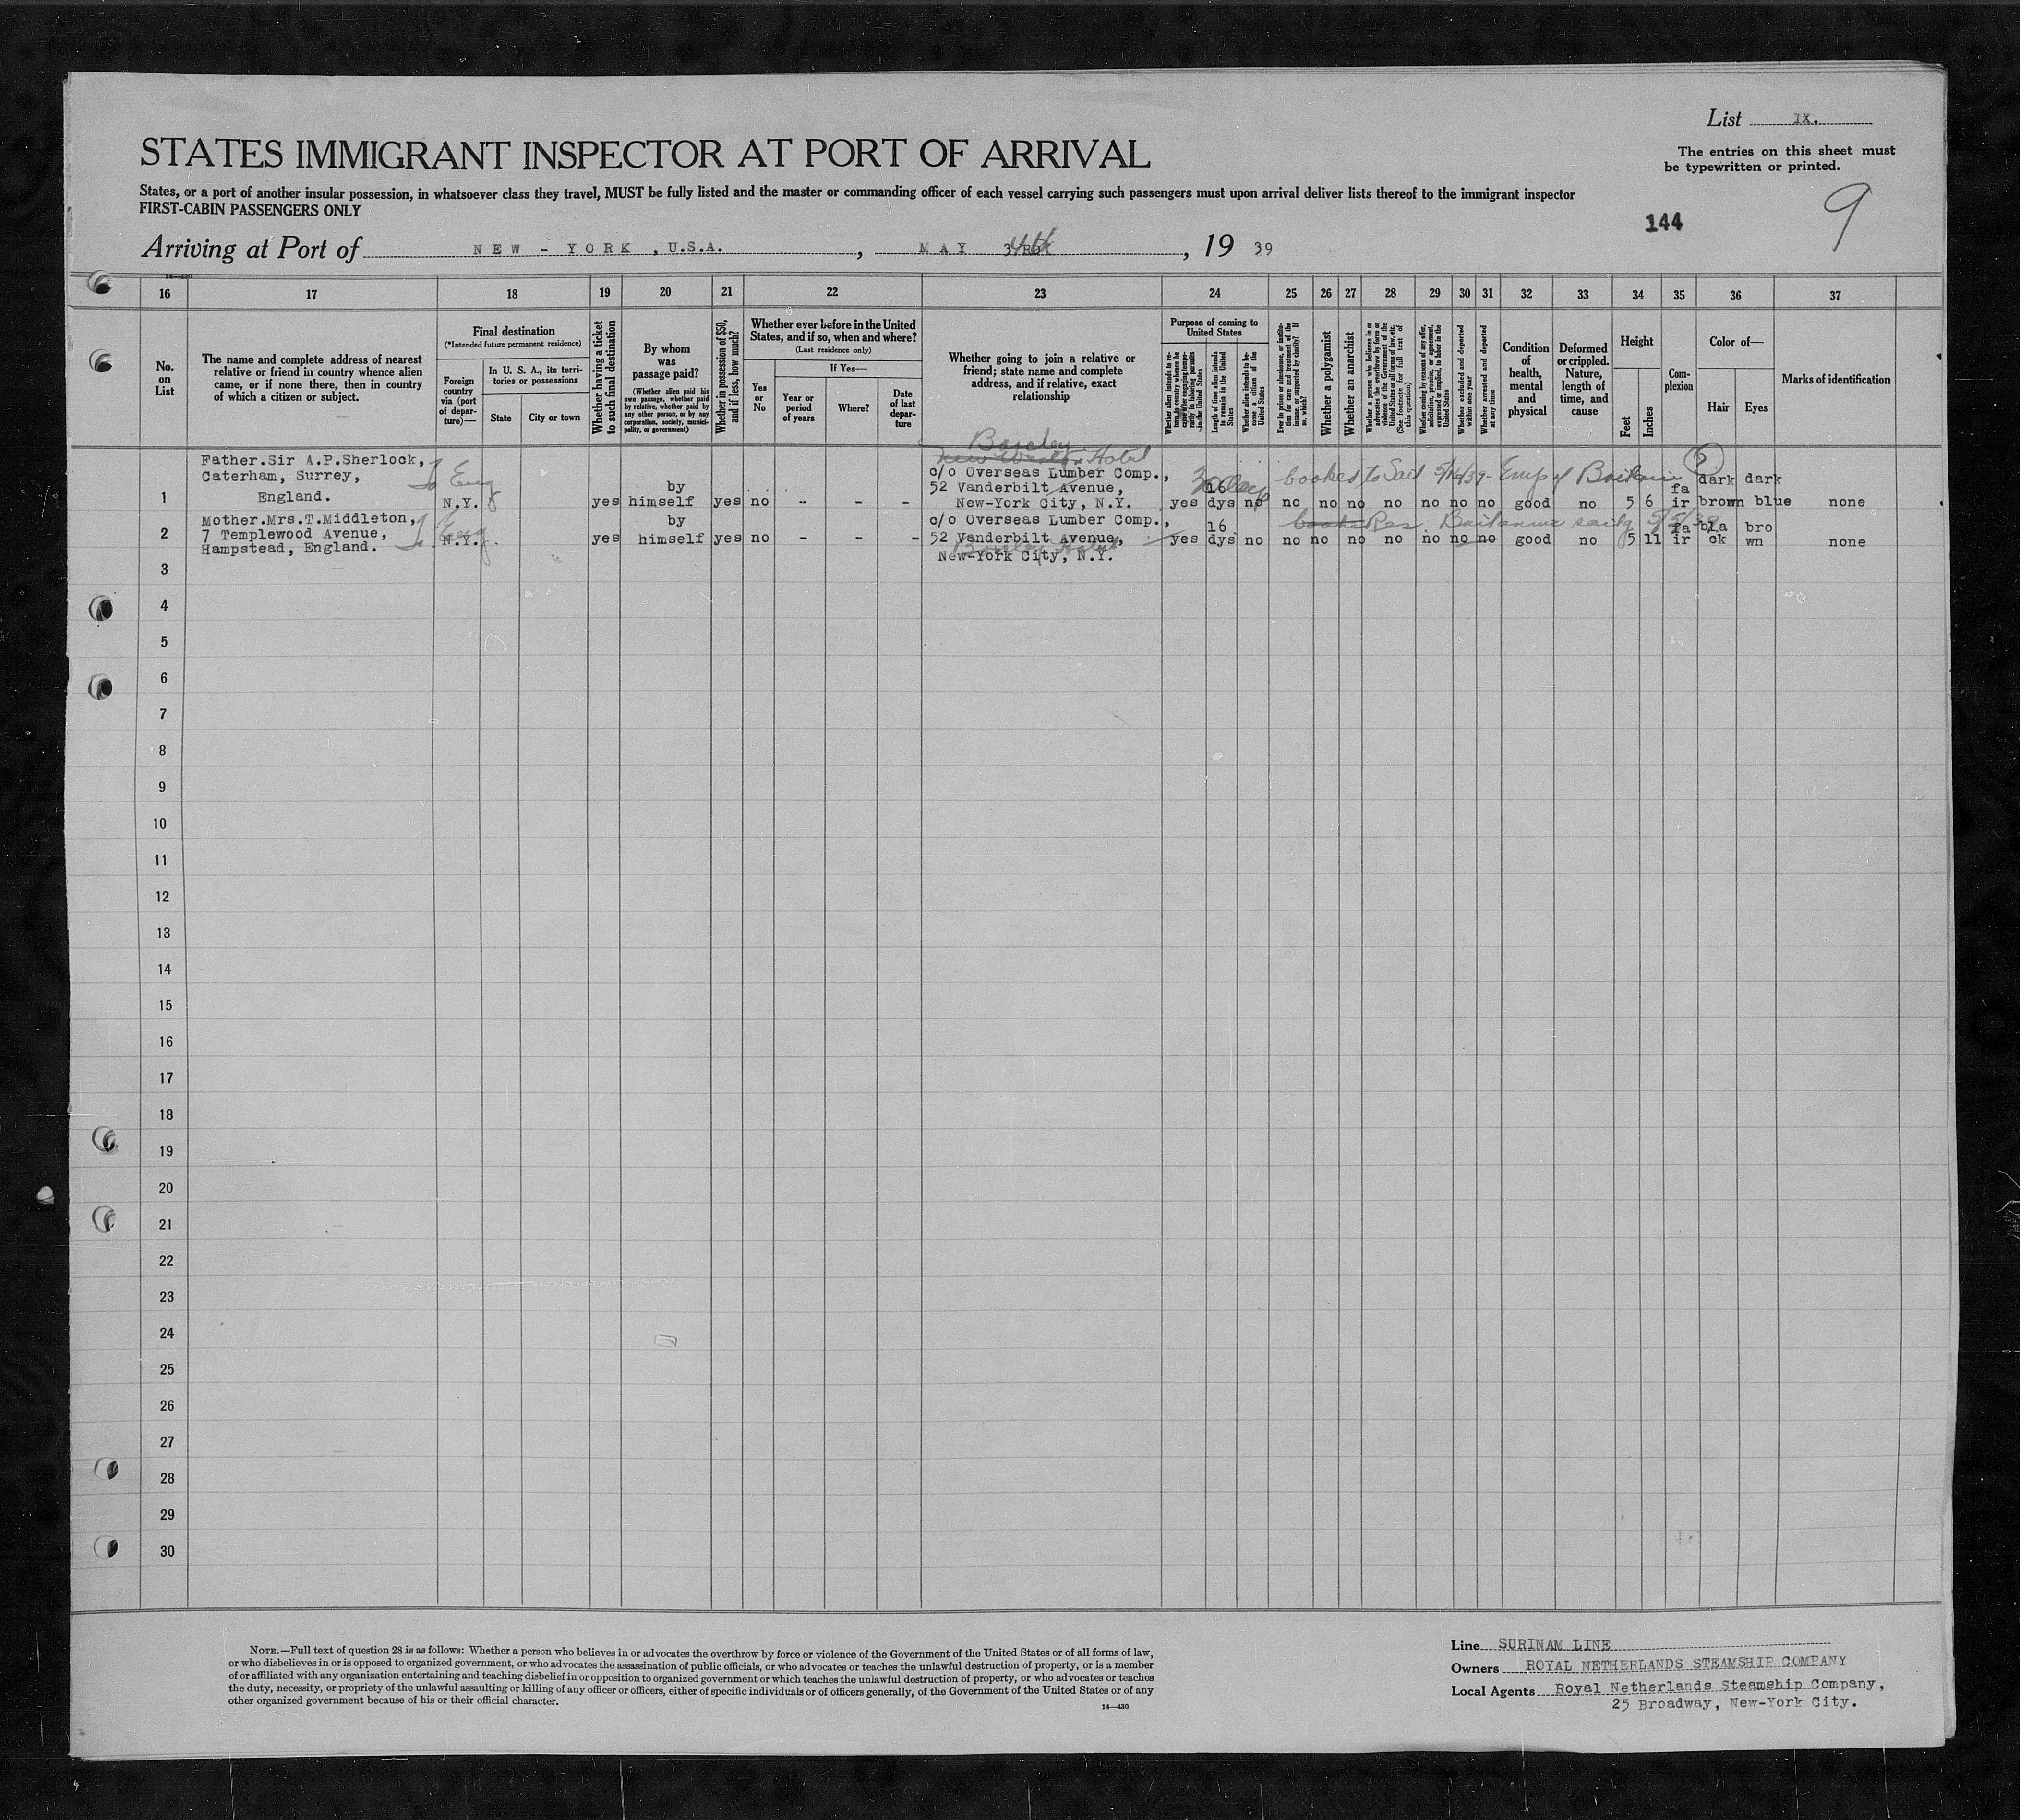 List IX.
The entries on this sheet must
be typewritten or printed.
STATES IMMIGRANT INSPECTOR AT PORT OF ARRIVAL
States, or a port of another insular possession, in whatsoever class they travel, MUST be fully listed and the master or commanding officer of each vessel carrying such passengers must upon arrival deliver lists thereof to the immigrant inspector
FIRST-CABIN PASSENGERS ONLY
144
9
Arriving at Port of NEW - YORK , U.S.A. , MAY 3RD 4th , 19 39
16 17 18 19 20 21 22 23 24 25 26 27 28 29 30 31 32 33 34 35 36 37
No.
on
List
The name and complete address of nearest
relative or friend in country whence alien
came, or if none there, then in country
of which a citizen or subject.
Final destination
(*Intended future permanent residence)
Foreign
country
via (port
of depar-
ture)—
In U. S. A., its terri-
tories or possessions
State
City or town
Whether having a ticket
to such final destination
By whom
was
passage paid?
(Whether alien paid his
own passage, whether paid
by relative, whether paid by
any other person, or by any
corporation, society, munici-
pality, or government)
Whether in possession of $50,
and if less, how much?
Whether ever before in the United
States, and if so, when and where?
(Last residence only)
Yes
or
No
If Yes—
Year or
period
of years
Where?
Date
of last
depar-
ture
Whether going to join a relative or
friend; state name and complete
address, and if relative, exact
relationship
Purpose of coming to
United States
Length of time alien intends
to remain in the United
States
Whether alien intends to be-
come a citizen of the
United States
Whether a polygamist
Whether an anarchist
Whether excluded and deported
within one year
Whether arrested and deported
at any time
Condition
of
health,
mental
and
physical
Deformed
or crippled.
Nature,
length of
time, and
cause
Height
Feet
Inches
Com-
plexion
Color of—
Hair
Eyes
Marks of identification
Barclay
Hotel
1
Father.Sir A.P.Sherlock,
Caterham, Surrey,
England.
Eng
N.Y.
yes
by
himself
yes no - - -
c/o Overseas Lumber Comp.,
52 Vanderbilt Avenue,
New-York City, N.Y.
booked to Sail 5/16/39 - Emp of Britain
yes 16 dys no no no no no no no no good no 5 6 fa ir dark brown dark blue none
2
Mother.Mrs.T.Middleton,
7 Templewood Avenue,
Hampstead, England.
Eng
N.Y.
yes
by
himself
yes no - - -
c/o Overseas Lumber Comp.,
52 Vanderbilt Avenue,
New-York City, N.Y.
yes 16 dys no no no no no no no no good no 5 11 fa ir bla ck bro wn none
3
4
5
6
7
8
9
10
11
12
13
14
15
16
17
18
19
20
21
22
23
24
25
26
27
28
29
30
NOTE.—Full text of question 28 is as follows: Whether a person who believes in or advocates the overthrow by force or violence of the Government of the United States or of all forms of law,
or who disbelieves in or is opposed to organized government, or who advocates the assassination of public officials, or who advocates or teaches the unlawful destruction of property, or is a member
of or affiliated with any organization entertaining and teaching disbelief in or opposition to organized government or which teaches the unlawful destruction of property, or who advocates or teaches
the duty, necessity, or propriety of the unlawful assaulting or killing of any officer or officers, either of specific individuals or of officers generally, of the Government of the United States or of any
other organized government because of his or their official character.
14—430
Line SURINAM LINE
Owners ROYAL NETHERLANDS STEAMSHIP COMPANY
Local Agents Royal Netherlands Steamship Company,
25 Broadway, New-York City.